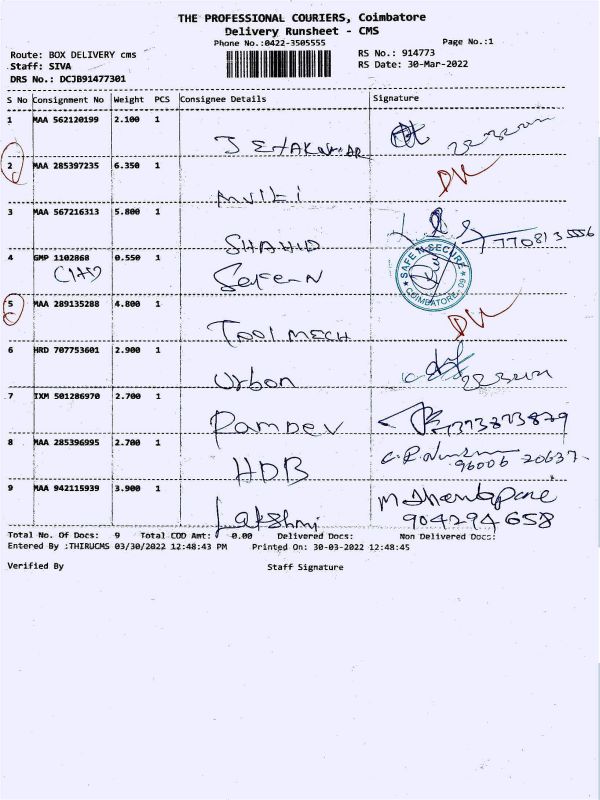 THE PROFESSIONAL COURIERS, Coimbatore
Delivery Runsheet - CMS
Phone No.:0422-3505555
Page No.:1
Route: BOX DELIVERY cms
RS No.: 914773
Staff: SIVA
RS Date: 30-Mar-2022
DRS No.: DCJB91477301
S No Consignment No Weight PCS Consignee Details Signature
1 MAA 562120199 2.100 1
2 MAA 285397235 6.350 1
3 MAA 567216313 5.800 1
7708135556
SHAHID
4 GMP 1102868 0.550 1
SAFE N SECURE
COIMBATORE - 09
5 MAA 289135288 4.800 1
TOOL MECH
6 HRD 707753601 2.900 1
Urban
7 IXM 501286970 2.700 1
7373873879
Ramdev
8 MAA 285396995 2.700 1
HDB
96006 20637
9 MAA 942115939 3.900 1
Lakshmi
9042946 58
Total No. Of Docs: 9 Total COD Amt: 0.00 Delivered Docs: Non Delivered Docs:
Entered By :THIRUCMS 03/30/2022 12:48:43 PM Printed On: 30-03-2022 12:48:45
Verified By Staff Signature